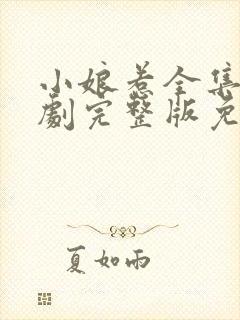 小娘惹全集
劇完整版免
夏如雨